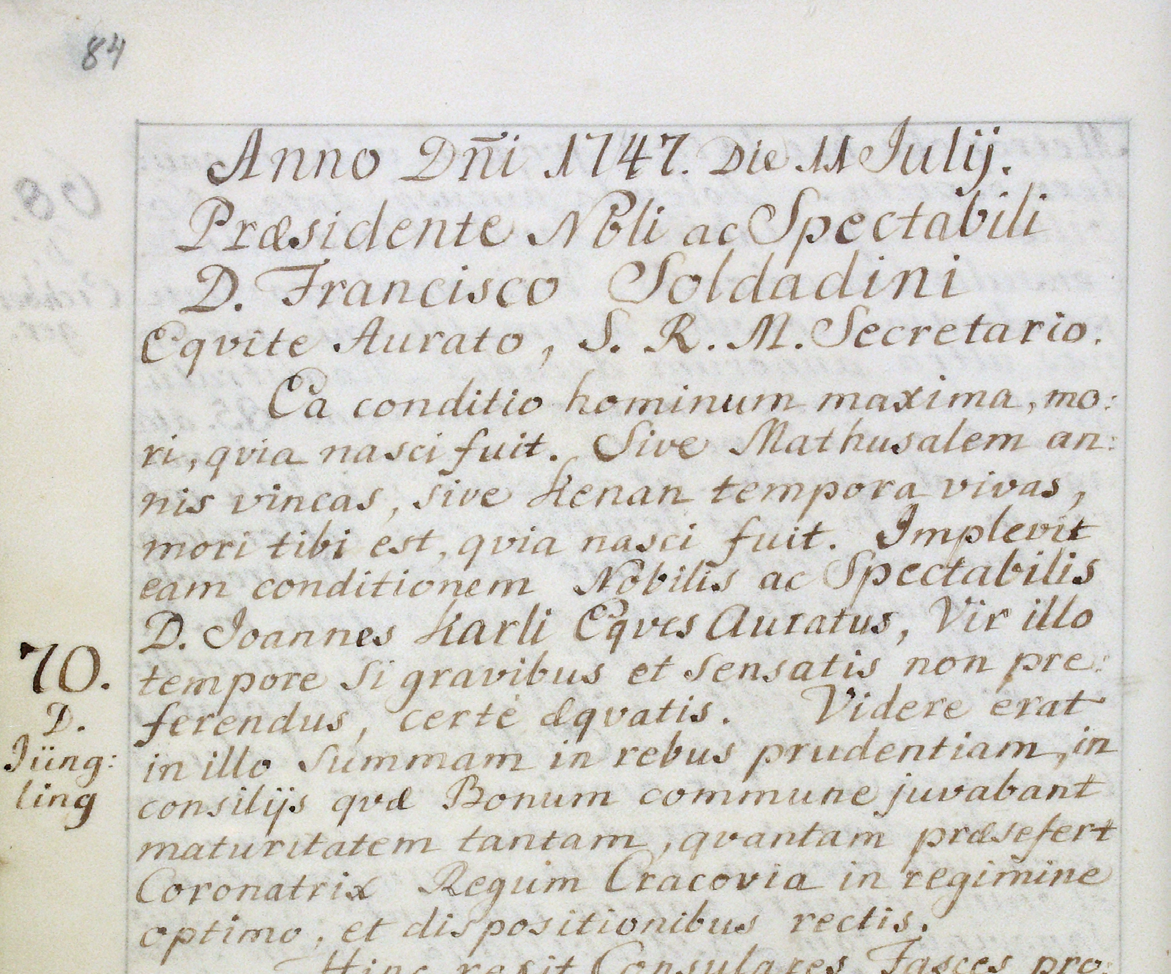 84
Anno Dn̄i 1747. Die 11 Julij.
Præsidente Nobli ac Spectabili
D. Francisco Soldadini
Eqvite Aurato, S. R. M. Secretario.
Ea conditio hominum maxima, mo:
ri, qvia nasci fuit. Sive Mathusalem an:
nis vincas, sive Kenan tempora vivas,
mori tibi est, qvia nasci fuit. Implevit
eam conditionem Nobilis ac Spectabilis
D. Joannes Karli Eqves Auratus, Vir illo
70.
tempore si gravibus et sensatis non pre:
D.
ferendus, certè æqvatis. Videre erat
Jüng:
in illo summam in rebus prudentiam, in
ling
consilijs qvæ Bonum commune juvabant
maturitatem tantam, qvantam præsefert
Coronatrix Regum Cracovia in regimine
optimo, et dispositionibus rectis.
Hinc rapit Consulares Fasces pro: